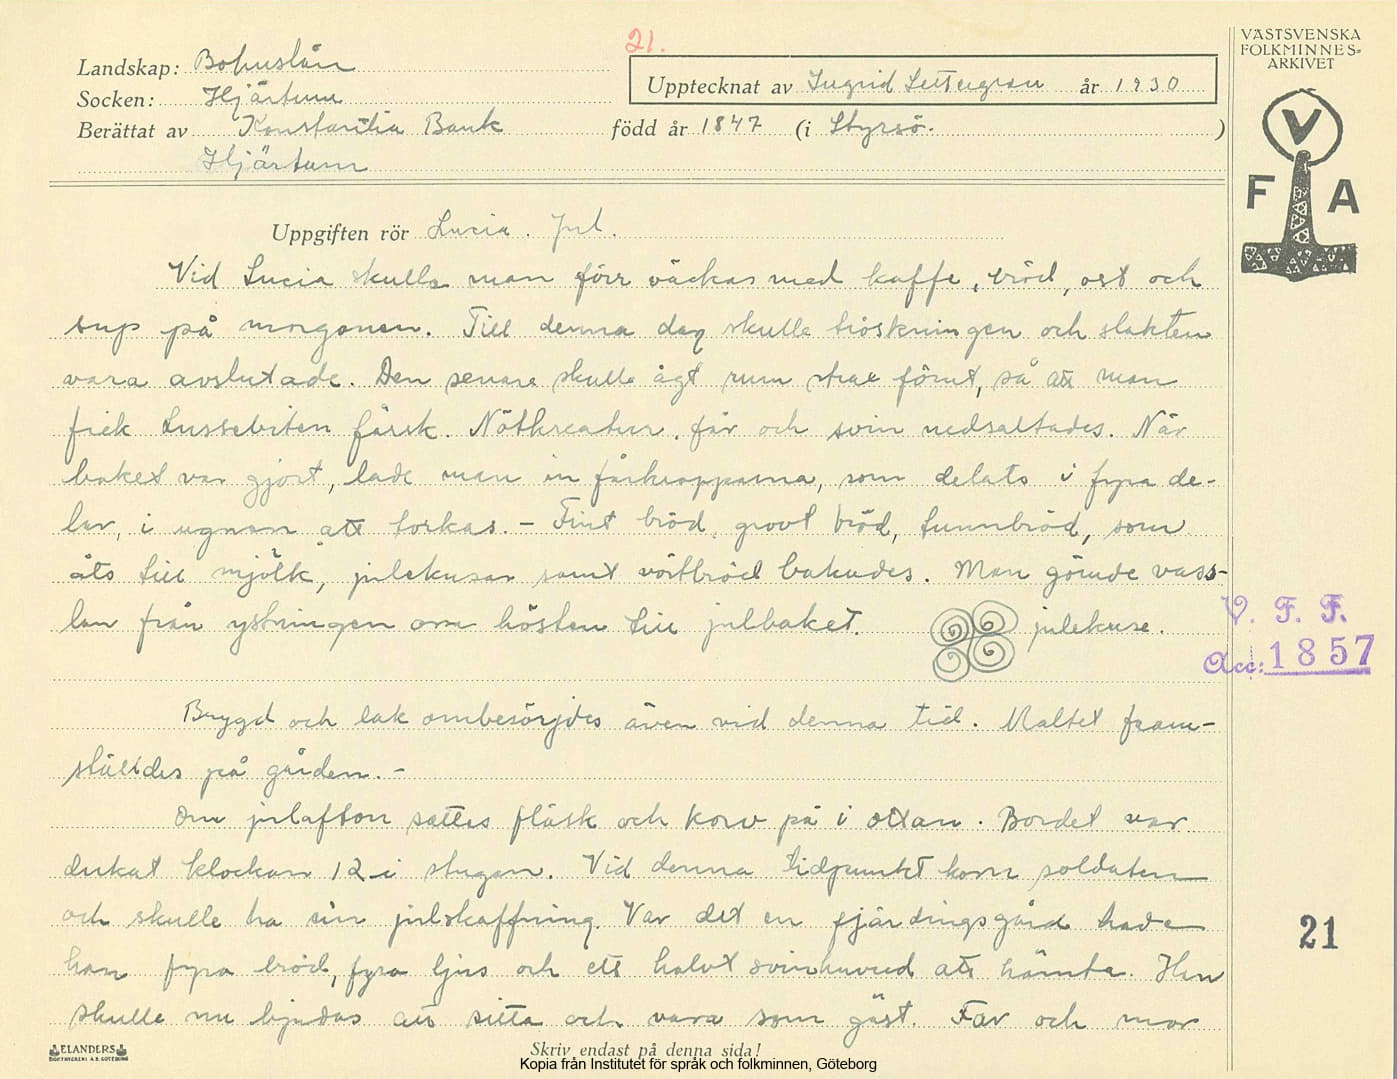 21.
VÄSTSVENSKA
FOLKMINNES=
ARKIVET
Landskap: Bohuslän
Upptecknat av Ingrid år 1930
Socken: Hjärtum
Berättat av Konstantia Bank född år 1847 (i Styrsö. )
Hjärtum
V
F A
Uppgiften rör Lucia. Jul.
Vid Lucia skulle man förr väckas med kaffe, bröd, ost och
sup på morgonen. Till denna dag skulle tröskningen och slakten
vara avslutade. Den senare skulle ägt rum strax förut, så att man
fick Lussebiten färsk. Nötkreatur, får och svin nedsaltades. När
baket var gjort, lade man in fårkropparna, som delats i fyra de-
lar, i ugnen att torkas. – Fint bröd, grovt bröd, tunnbröd, som
åts till mjölk, julekusar samt vörtbröd bakades. Man gömde vass-
lan från ystningen om hösten till julbaket. julekuse.
V. F. F.
Acc: 1857
Brygd och bak ombesörjdes även vid denna tid. Maltet fram-
ställdes på gården. –
Om julafton sattes fläsk och korv på i ottan. Bordet var
dukat klockan 12 i stugan. Vid denna tidpunkt kom soldaten
och skulle ha sin julskaffning. Var det en fjärdingsgård hade
han fyra bröd, fyra ljus och ett halvt svinhuvud att hämta. Han
skulle nu bjudas att sitta och vara som gäst. Far och mor
21
ELANDERS
BOKTRYCKERI A.B. GÖTEBORG
Skriv endast på denna sida!
Kopia från Institutet för språk och folkminnen, Göteborg